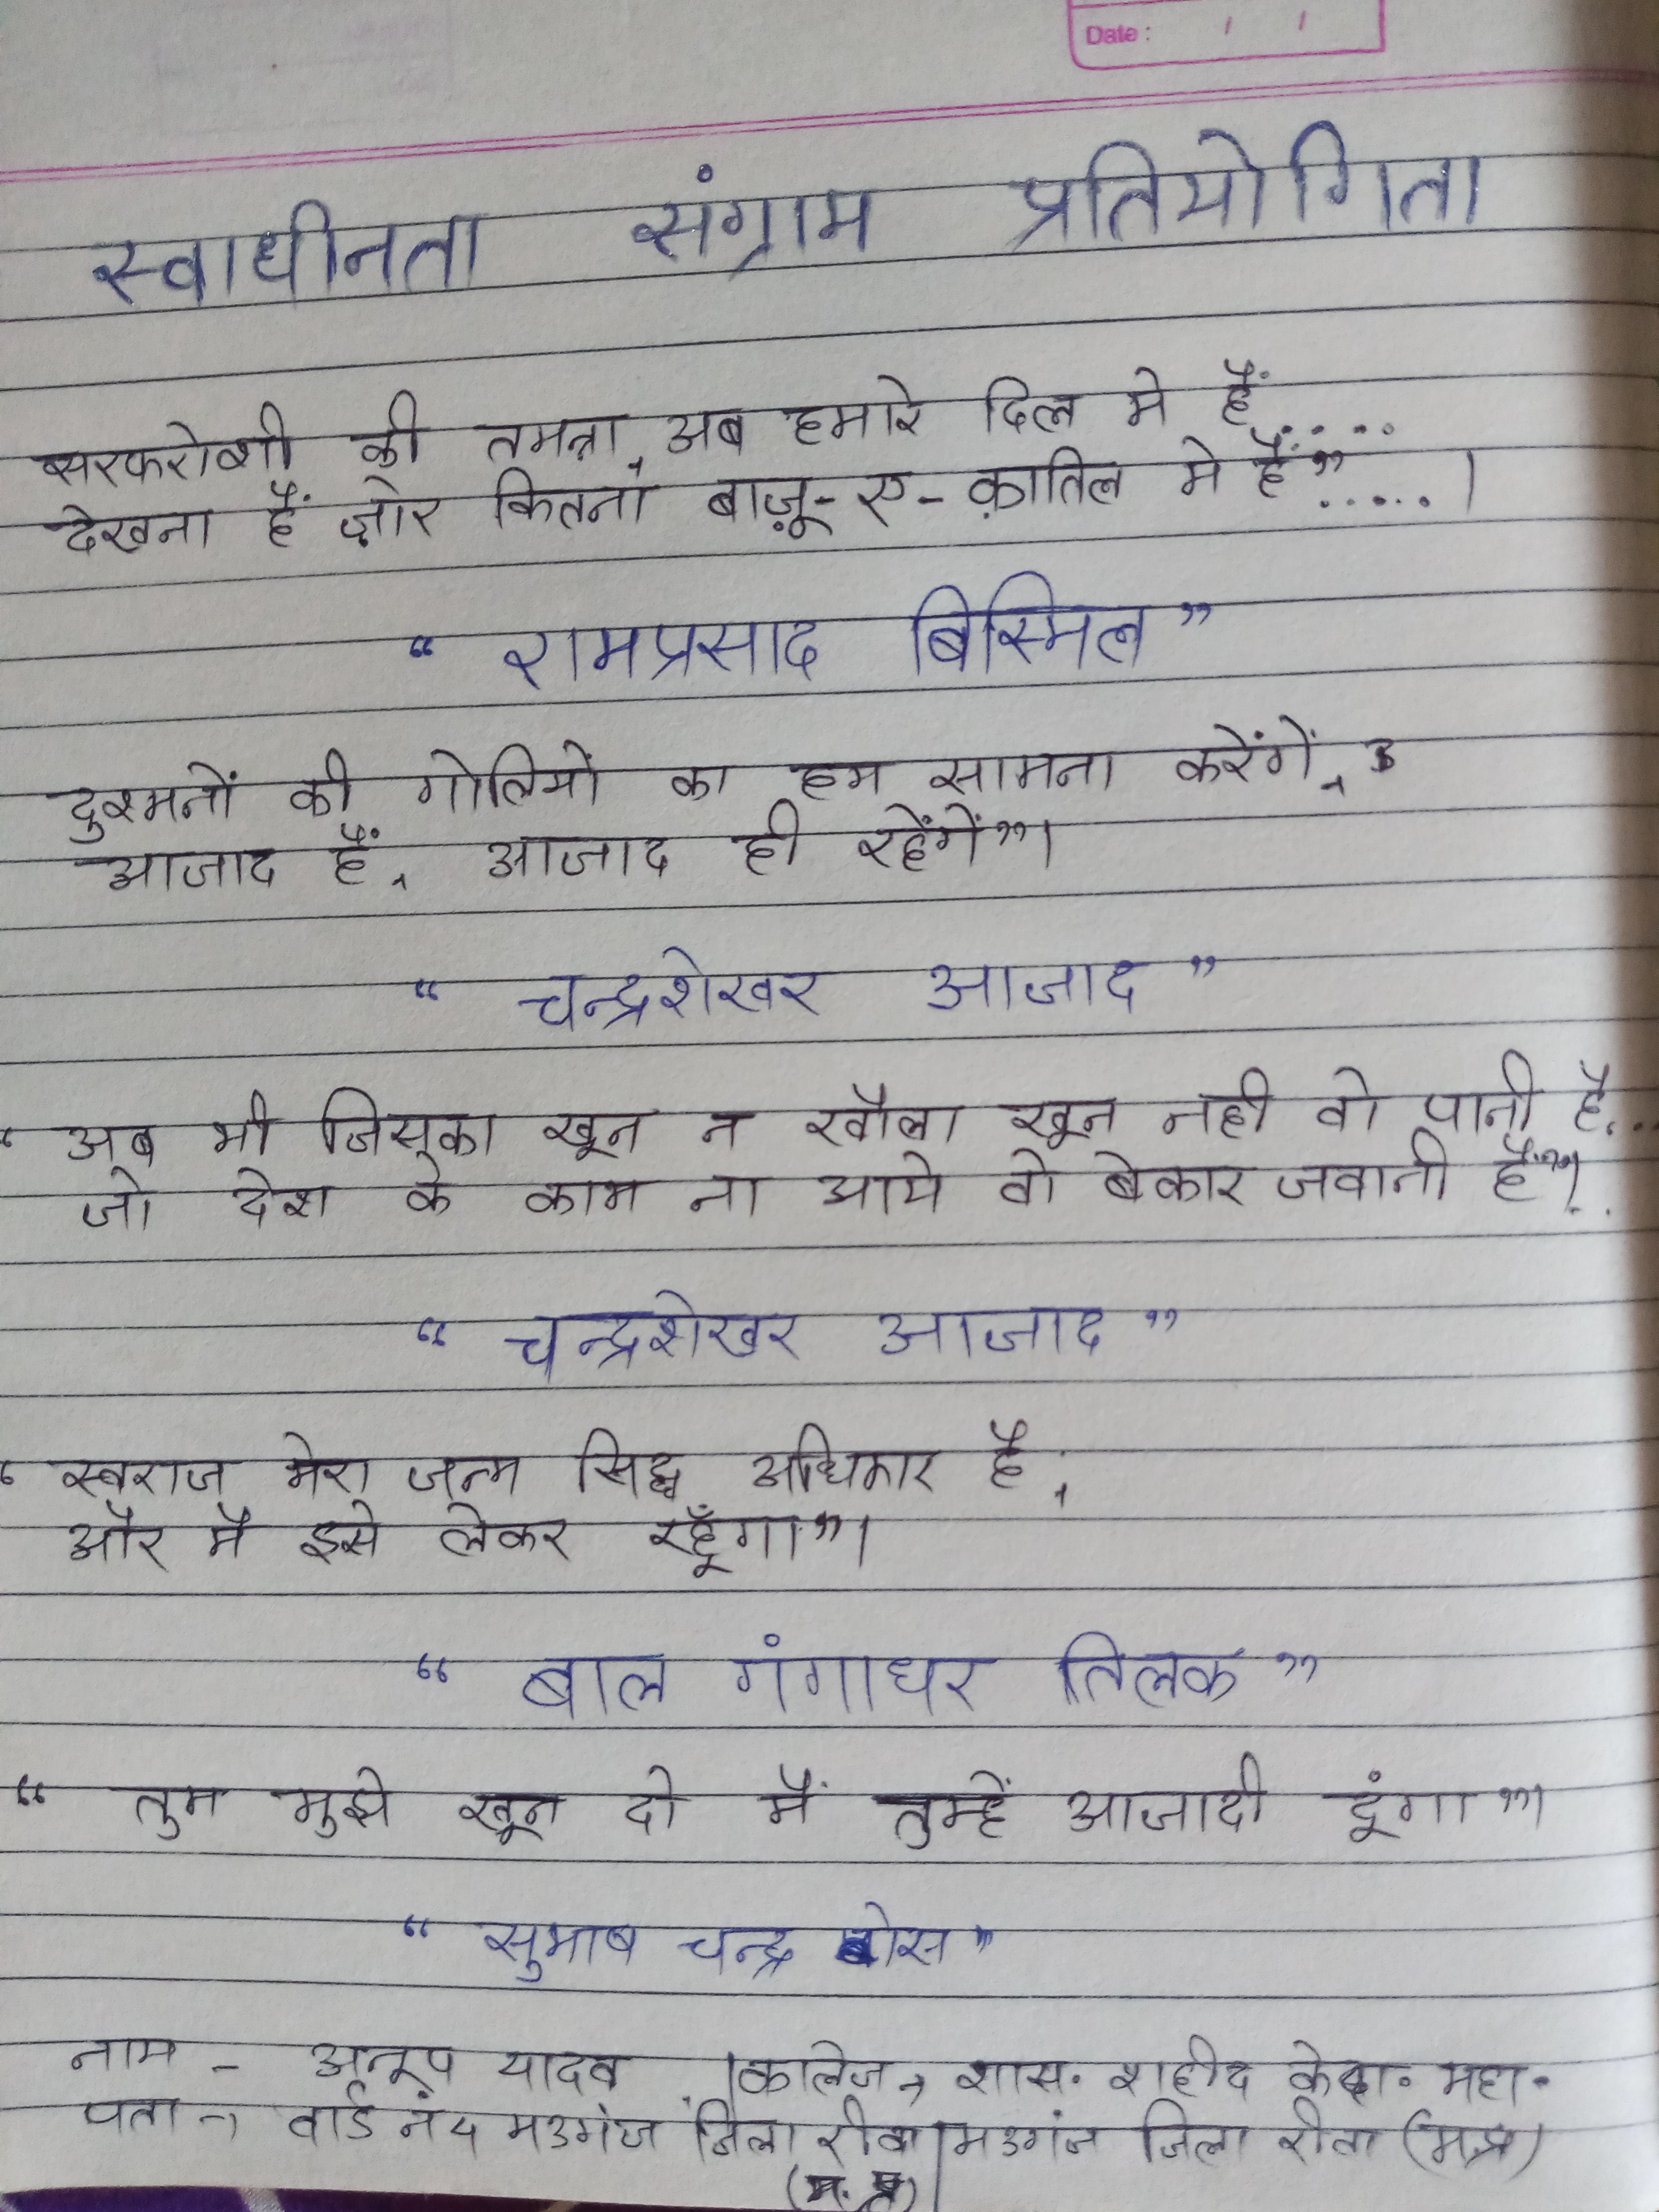 Date : / /
स्वाधीनता संग्राम प्रतियोगिता
सरफरोशी की तमन्ना, अब हमारे दिल मे हैं.....
देखना हैं ज़ोर कितना बाज़ू-ए-क़ातिल मे हैं”.....।
“ रामप्रसाद बिस्मिल ”
दुश्मनों की गोलियों का हम सामना करेंगें,
आजाद हैं, आजाद ही रहेंगें”।
“ चन्द्रशेखर आजाद ”
“ अब भी जिसका खून न खौला खून नही वो पानी है...
जो देश के काम ना आये वो बेकार जवानी है”।..
“ चन्द्रशेखर आजाद ”
“ स्वराज मेरा जन्म सिद्ध अधिकार है,
और मै इसे लेकर रहूँगा”।
“ बाल गंगाधर तिलक ”
“ तुम मुझे खून दो मैं तुम्हें आजादी दूंगा”।
“ सुभाष चन्द्र बोस ”
नाम - अनूप यादव | कालेज → शास. शहीद केदा. महा.
पता → वार्ड नं 4 मउगंज जिला रीवा | मउगंज जिला रीवा (म.प्र)
(म. प्र)